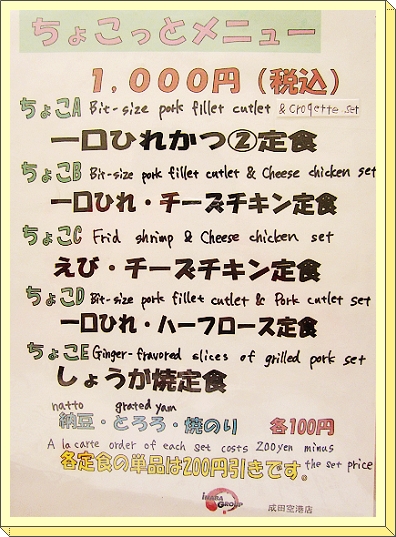 ちょこっとメニュー
1,000円(税込)
ちょこA Bit-size pork fillet cutlet & Croqette set
一口ひれかつ②定食
ちょこB Bit-size pork fillet cutlet & Cheese chicken set
一口ひれ・チーズチキン定食
ちょこC Frid shrimp & Cheese chicken set
えび・チーズチキン定食
ちょこD Bit-size pork fillet cutlet & Pork cutlet set
一口ひれ・ハーフロース定食
ちょこE Ginger-fravored slices of grilled pork set
しょうが焼定食
natto grated yam
納豆・とろろ・焼のり 各100円
A la carte order of each set costs 200yen minus the set price
各定食の単品は200円引きです。
INABA GROUP 成田空港店